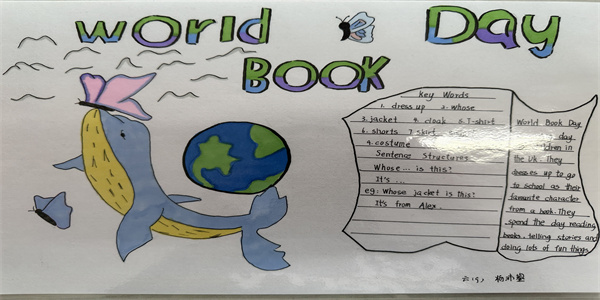 World Day
BOOK
Key Words
1. dress up 2. whose
3. jacket 4. cloak 5. T-shirt
6. shorts 7. skirt
9. costume
Sentence Structures
Whose ... is this?
It's ...
eg: Whose jacket is this?
It's from Alex.
World Book Day
day
in
the UK. They
dresses up to go
to school as their
favourite character
from a book. They
spend the day reading
books, telling stories and
doing lots of fun things